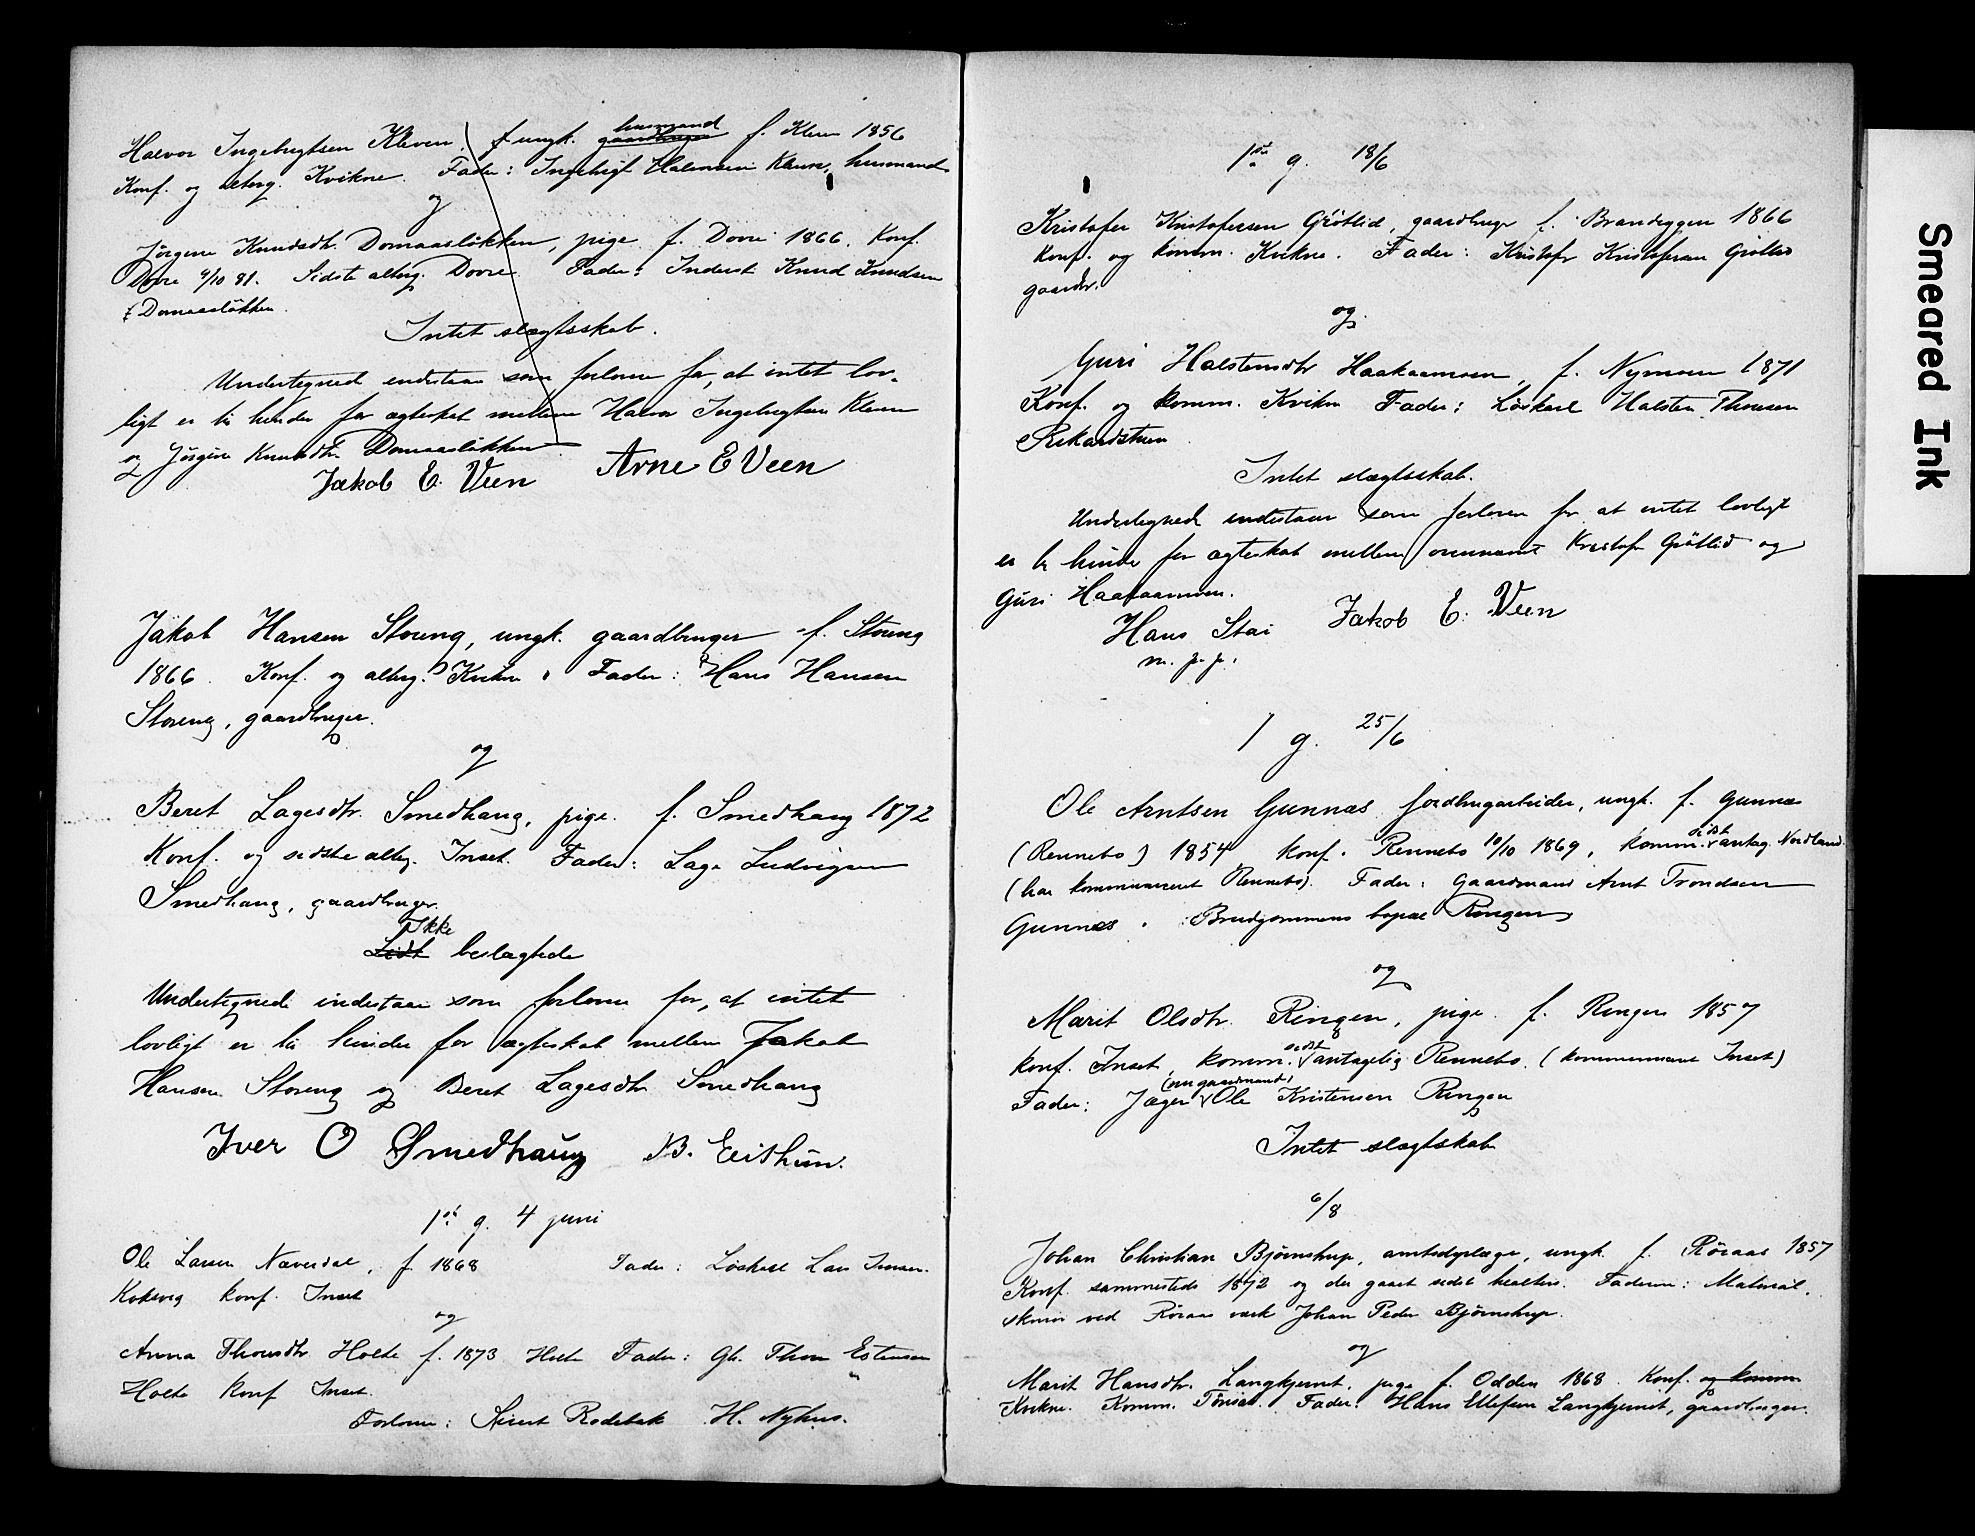 Halvor Ingebrigtsen Kleven, ungk. gaardbruger husmand f. Kleven 1856
Konf. og alterg. Kvikne. Fader: Ingebrigt Halvorsen Kleven, husmand
og
Jørgine Knudsdtr. Domaasløkken, pige f. Dovre 1866. Konf.
Dovre 4/10 81. Sidste alterg. Dovre. Fader: Inderst Knud Knudsen
Domaasløkken.
Intet slægtsskab.
Undertegnede indestaar som forlovere for, at intet lov-
ligt er til hinder for ægteskab mellem Halvor Ingebrigtsen Kleven
og Jørgine Knudsdtr. Domaasløkken
Jakob E. Veen Arne E Veen
Jakob Hansen Storeng, ungk. gaardbruger f. Storeng
1866. Konf. og alterg. Kvikne. Fader: Hans Hansen
Storeng, gaardbruger.
og
Beret Lagesdtr. Smedhaug, pige f. Smedhaug 1872
Konf. og sidste alterg. Inset. Fader: Lage Ludvigsen
Smedhaug, gaardbruger.
Ikke
Lidt beslægtede
Undertegnede indestaar som forlovere for, at intet
lovligt er til hinder for ægteskab mellem Jakob
Hansen Storeng og Beret Lagesdtr Smedhaug
Iver O Smedhaug B. Eithun.
1ste g. 4 juni
Ole Larsen Næverdal, f. 1868 Fader: Løskarl Lars
konf. Inset
og
Anna Thoresdtr Holte f. 1873 Holte Fader: Gb. Thore Estensen
Holte konf Inset.
Forlovere: Sivert Rodebak H. Nyhus.
1ste g. 18/6
Kristofer Kristofersen Grötlid, gaardbruger f. Brandeggen 1866
Konf. og komm. Kvikne. Fader: Kristofer Kristofersen Grötlid
gaardbr.
og
Guri Halstensdtr Haakaamoen, f. Nymoen 1871
Konf. og komm. Kvikne Fader: Løskarl Halsten Thoresen
Rekardstuen
Intet slægtsskab.
Undertegnede indestaar som forlovere for at intet lovligt
er til hinder for ægteskab mellem ovennævnte Kristofer Grötlid og
Guri Haakaamoen.
Hans Stai Jakob E. Veen
m. p. p.
1 g. 25/6
Ole Arntsen Gunnæs jordbrugarbeider, ungk. f. Gunnæs
(Rennebo) 1854 konf. Rennebo 10/10 1869, komm. sidst antag. Nordland
(har kommuniceret Rennebo). Fader: Gaardmand Arnt Trondsen
Gunnæs. Brudgommens bopæl Ringen
og
Marit Olsdtr. Ringen, pige f. Ringen 1857
konf. Inset, komm. sidst antagelig Rennebo. (kommunicerte Inset)
Fader: Jæger (ongaardmand) Ole Kristensen Ringen
Intet slægtskab
6/8
Johan Christian Bjørnstrup, amtsdyrlæge, ungk. f. Røraas 1857
Konf. sammesteds 1872 og der gaaet sidst kealters. Faderen: Material-
skriver ved Røraas værk Johan Peder Bjørnstrup.
og
Marit Hansdtr. Langkjernet, pige f. Odden 1868. Konf. og komm.
Kvikne. Komm. Tönset. Fader: Hans Ellefsen Langkjernet, gaardbruger.
Smeared Ink